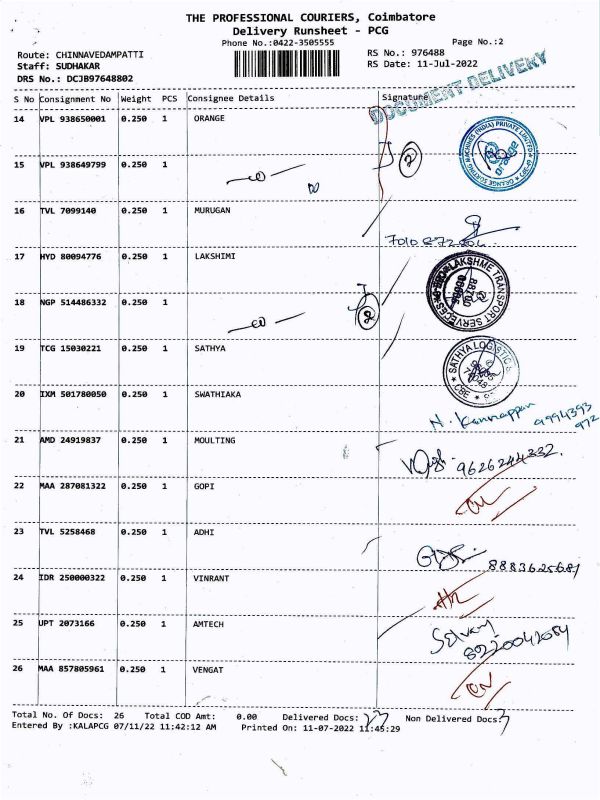 THE PROFESSIONAL COURIERS, Coimbatore
Delivery Runsheet - PCG
Phone No.:0422-3505555
Page No.:2
Route: CHINNAVEDAMPATTI
RS No.: 976488
Staff: SUDHAKAR
RS Date: 11-Jul-2022
DRS No.: DCJB97648802
DOCUMENT DELIVERY
S No Consignment No Weight PCS Consignee Details Signature
14 VPL 938650001 0.250 1 ORANGE
15 VPL 938649799 0.250 1
16 TVL 7099140 0.250 1 MURUGAN
17 HYD 80094776 0.250 1 LAKSHIMI
18 NGP 514486332 0.250 1
19 TCG 15030221 0.250 1 SATHYA
20 IXM 501780050 0.250 1 SWATHIAKA
N. Kannappan 9994393
972
21 AMD 24919837 0.250 1 MOULTING
9626244332
22 MAA 287081322 0.250 1 GOPI
23 TVL 5258468 0.250 1 ADHI
8883625681
24 IDR 250000322 0.250 1 VINRANT
25 UPT 2073166 0.250 1 AMTECH
Selvam
8220042084
26 MAA 857805961 0.250 1 VENGAT
Total No. Of Docs: 26 Total COD Amt: 0.00 Delivered Docs: 23 Non Delivered Docs: 3
Entered By :KALAPCG 07/11/22 11:42:12 AM Printed On: 11-07-2022 11:45:29